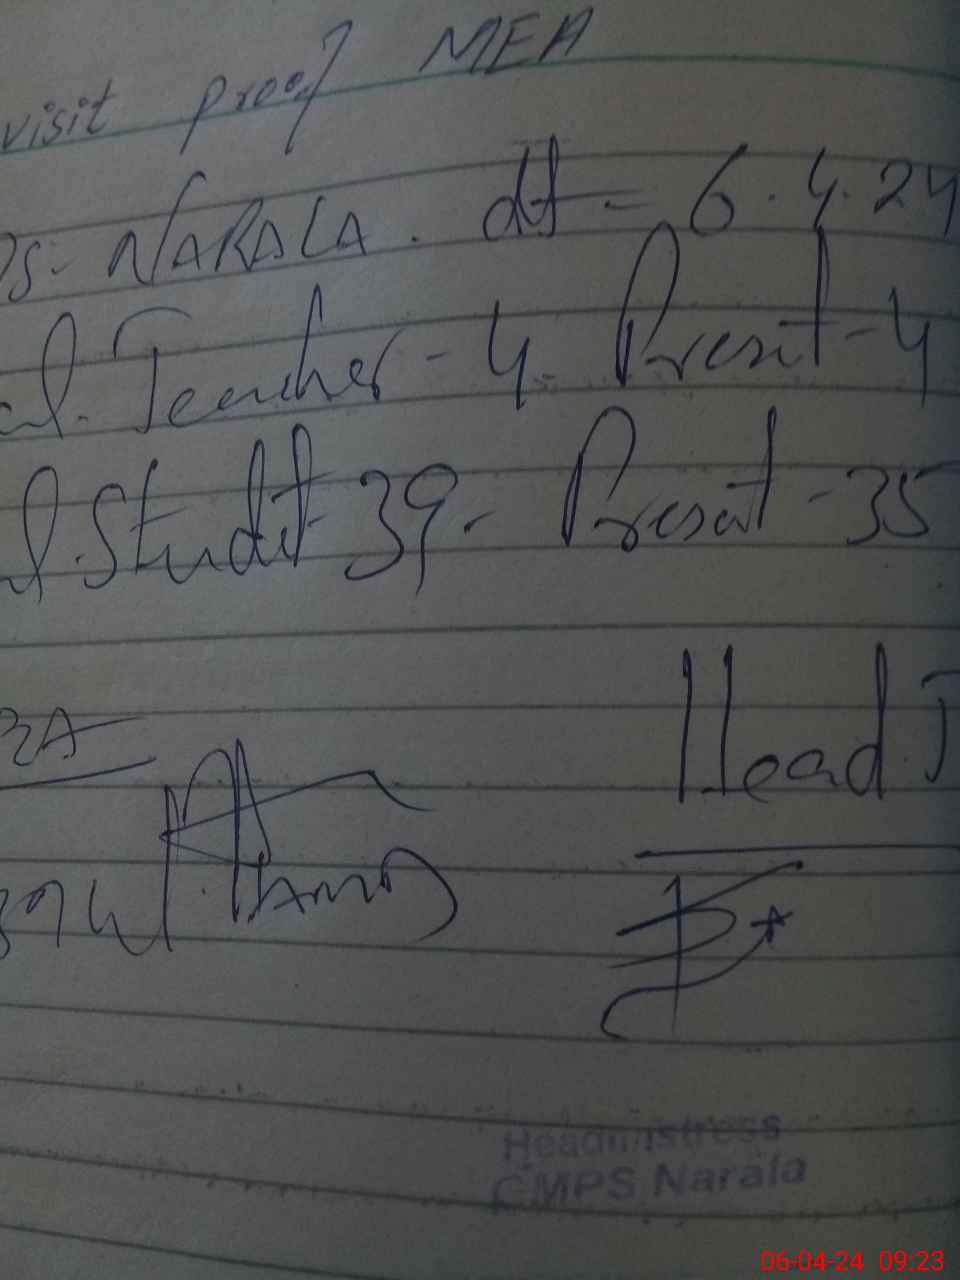 visit proof MEA
PS. NARALA. dt - 6.4.24
al. Teacher - 4. Present - 4
al. Studt - 39. Present - 35
Head T
Headmistress
GMPS Narala
06-04-24 09:23